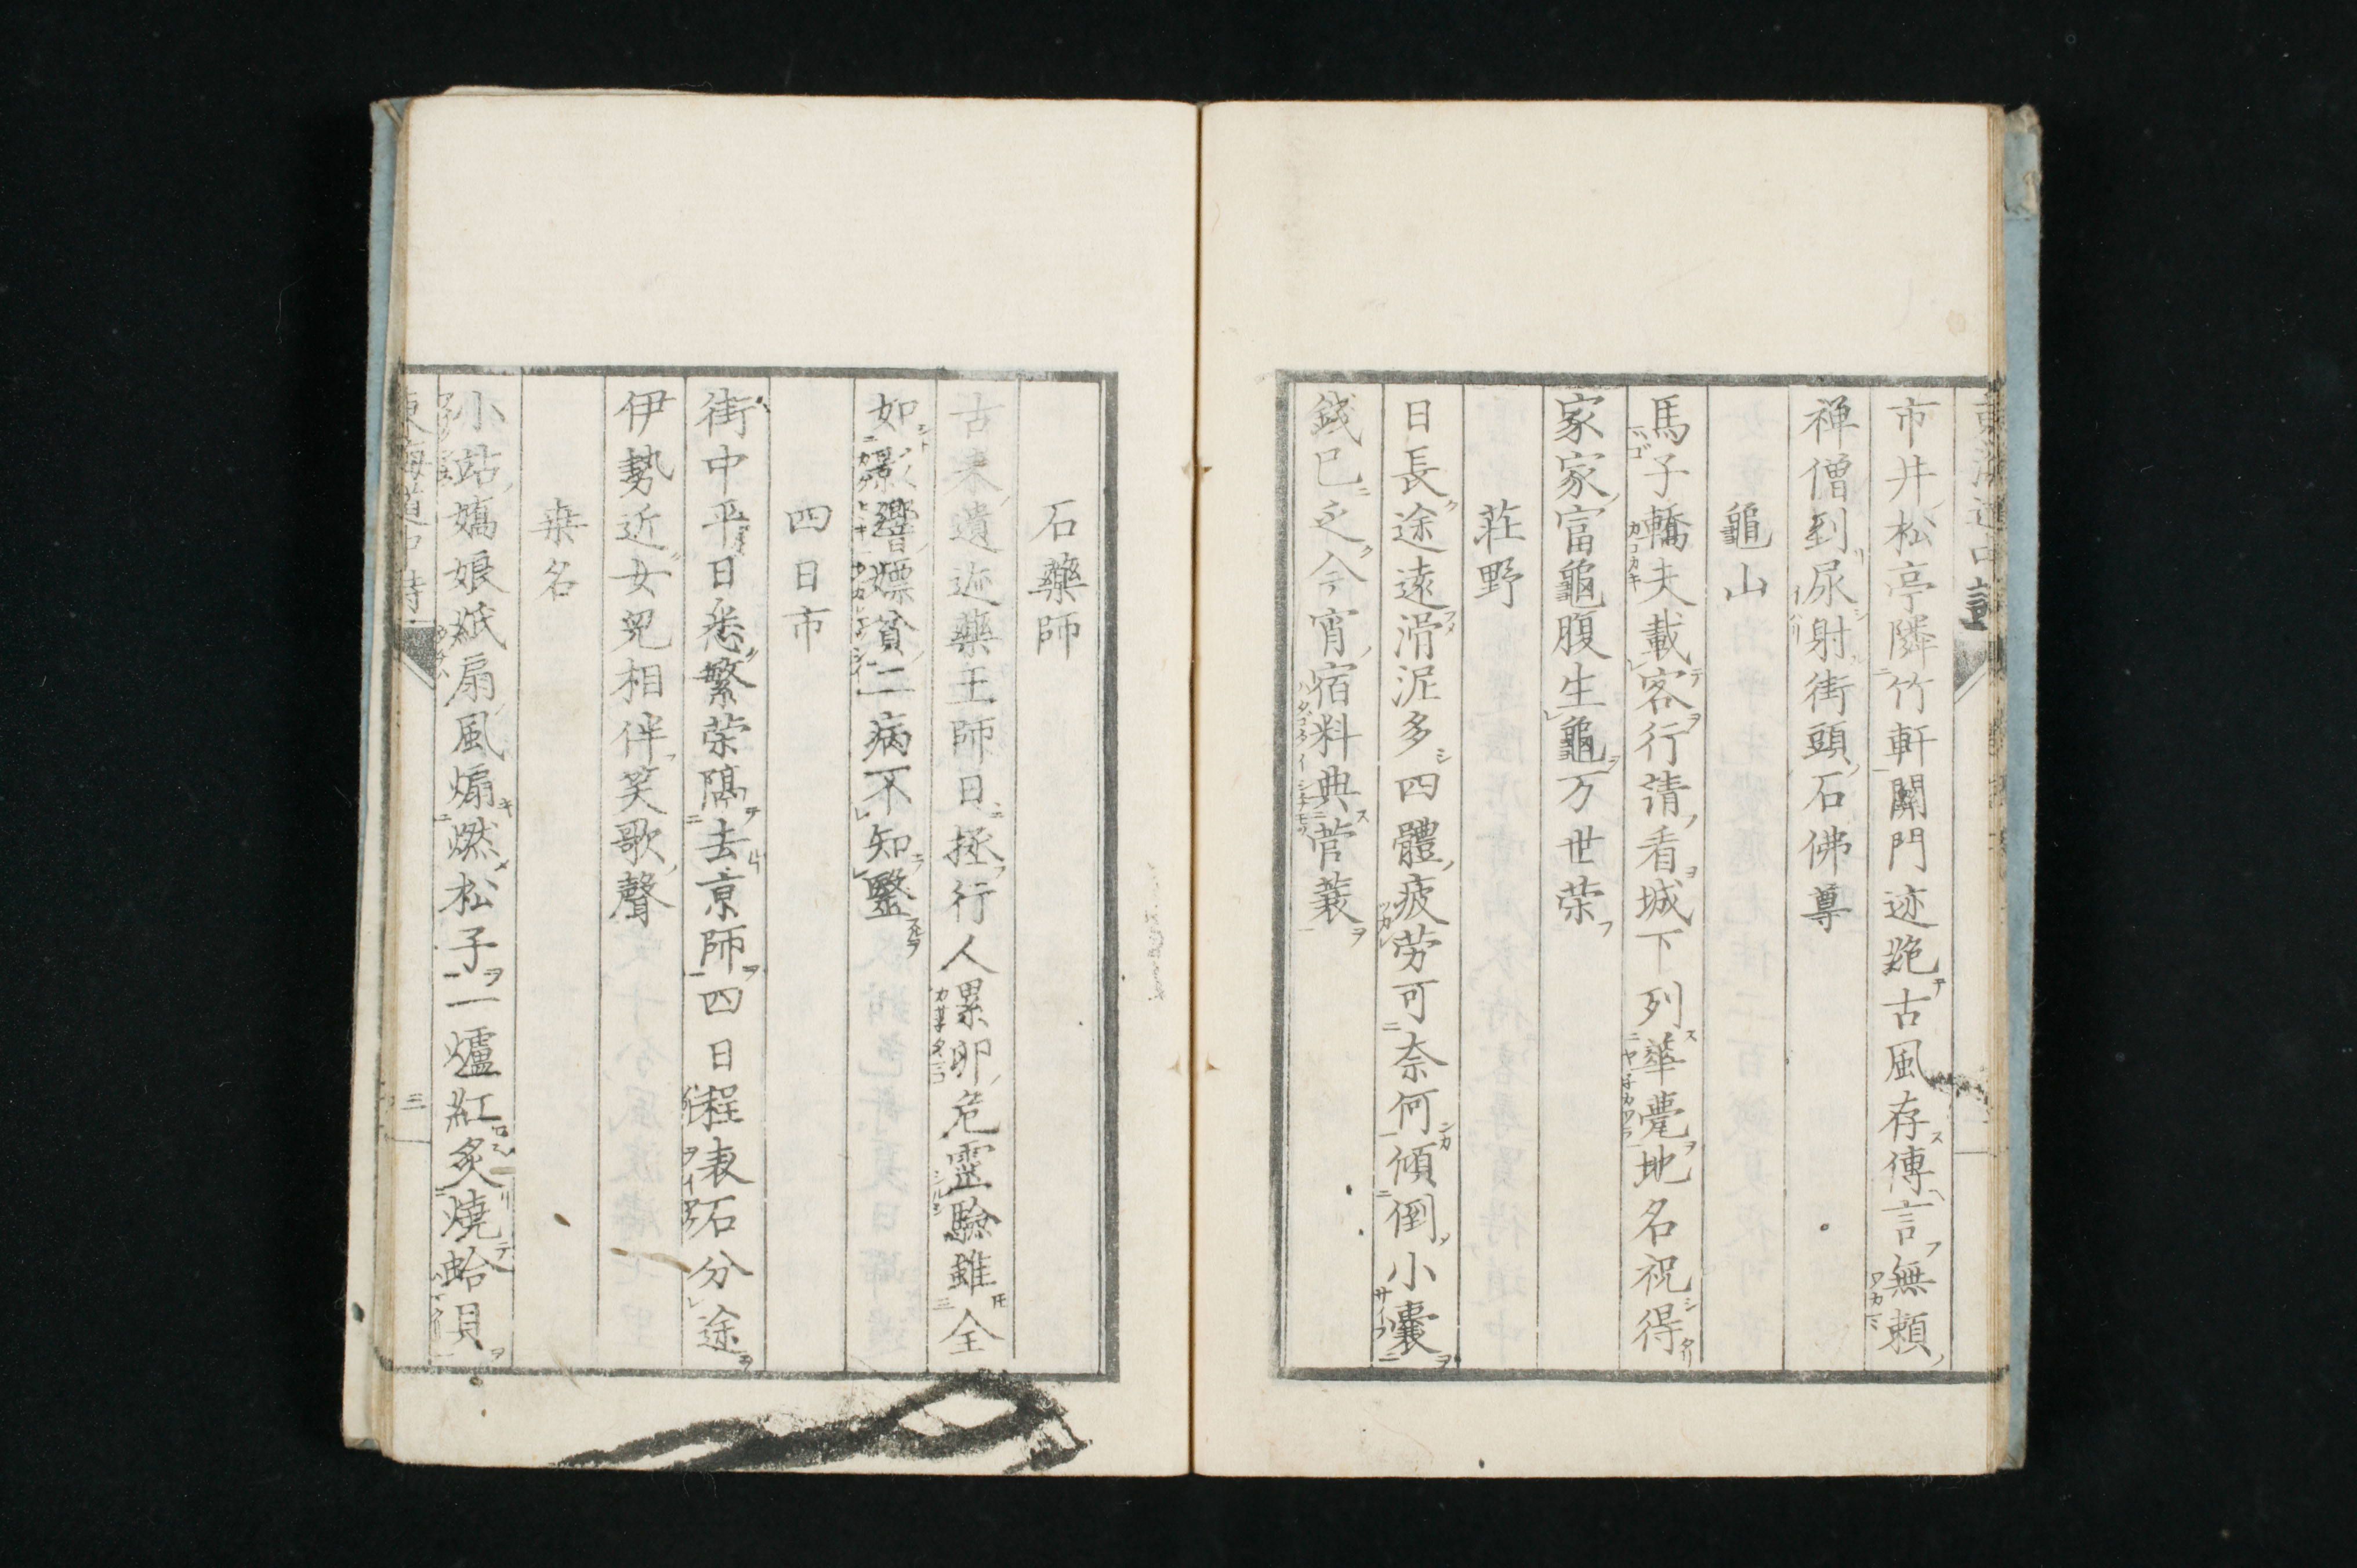 市井松亭隣竹軒關門迹絶古風存傳言無頼
禅僧到尿射街頭石佛尊
龜山
馬子轎夫載客行請看城下列華甍地名祝得
家家富龜腹生龜万世荣
荘野
日長途遠滑泥多四體疲劳可奈何傾倒小囊
錢已乏今宵宿料典菅蓑
石藥師
古来遺迹藥王師日拯行人累卵危霊驗雖全
如影響嫖貧二病不知毉
四日市
街中平日悉繁荣隔去京師四日程表石分途
伊勢近女兒相伴笑歌聲
桒名
小站嬌娘紙扇風煽燃松子一爐紅炙燒蛤
東海道中詩
三